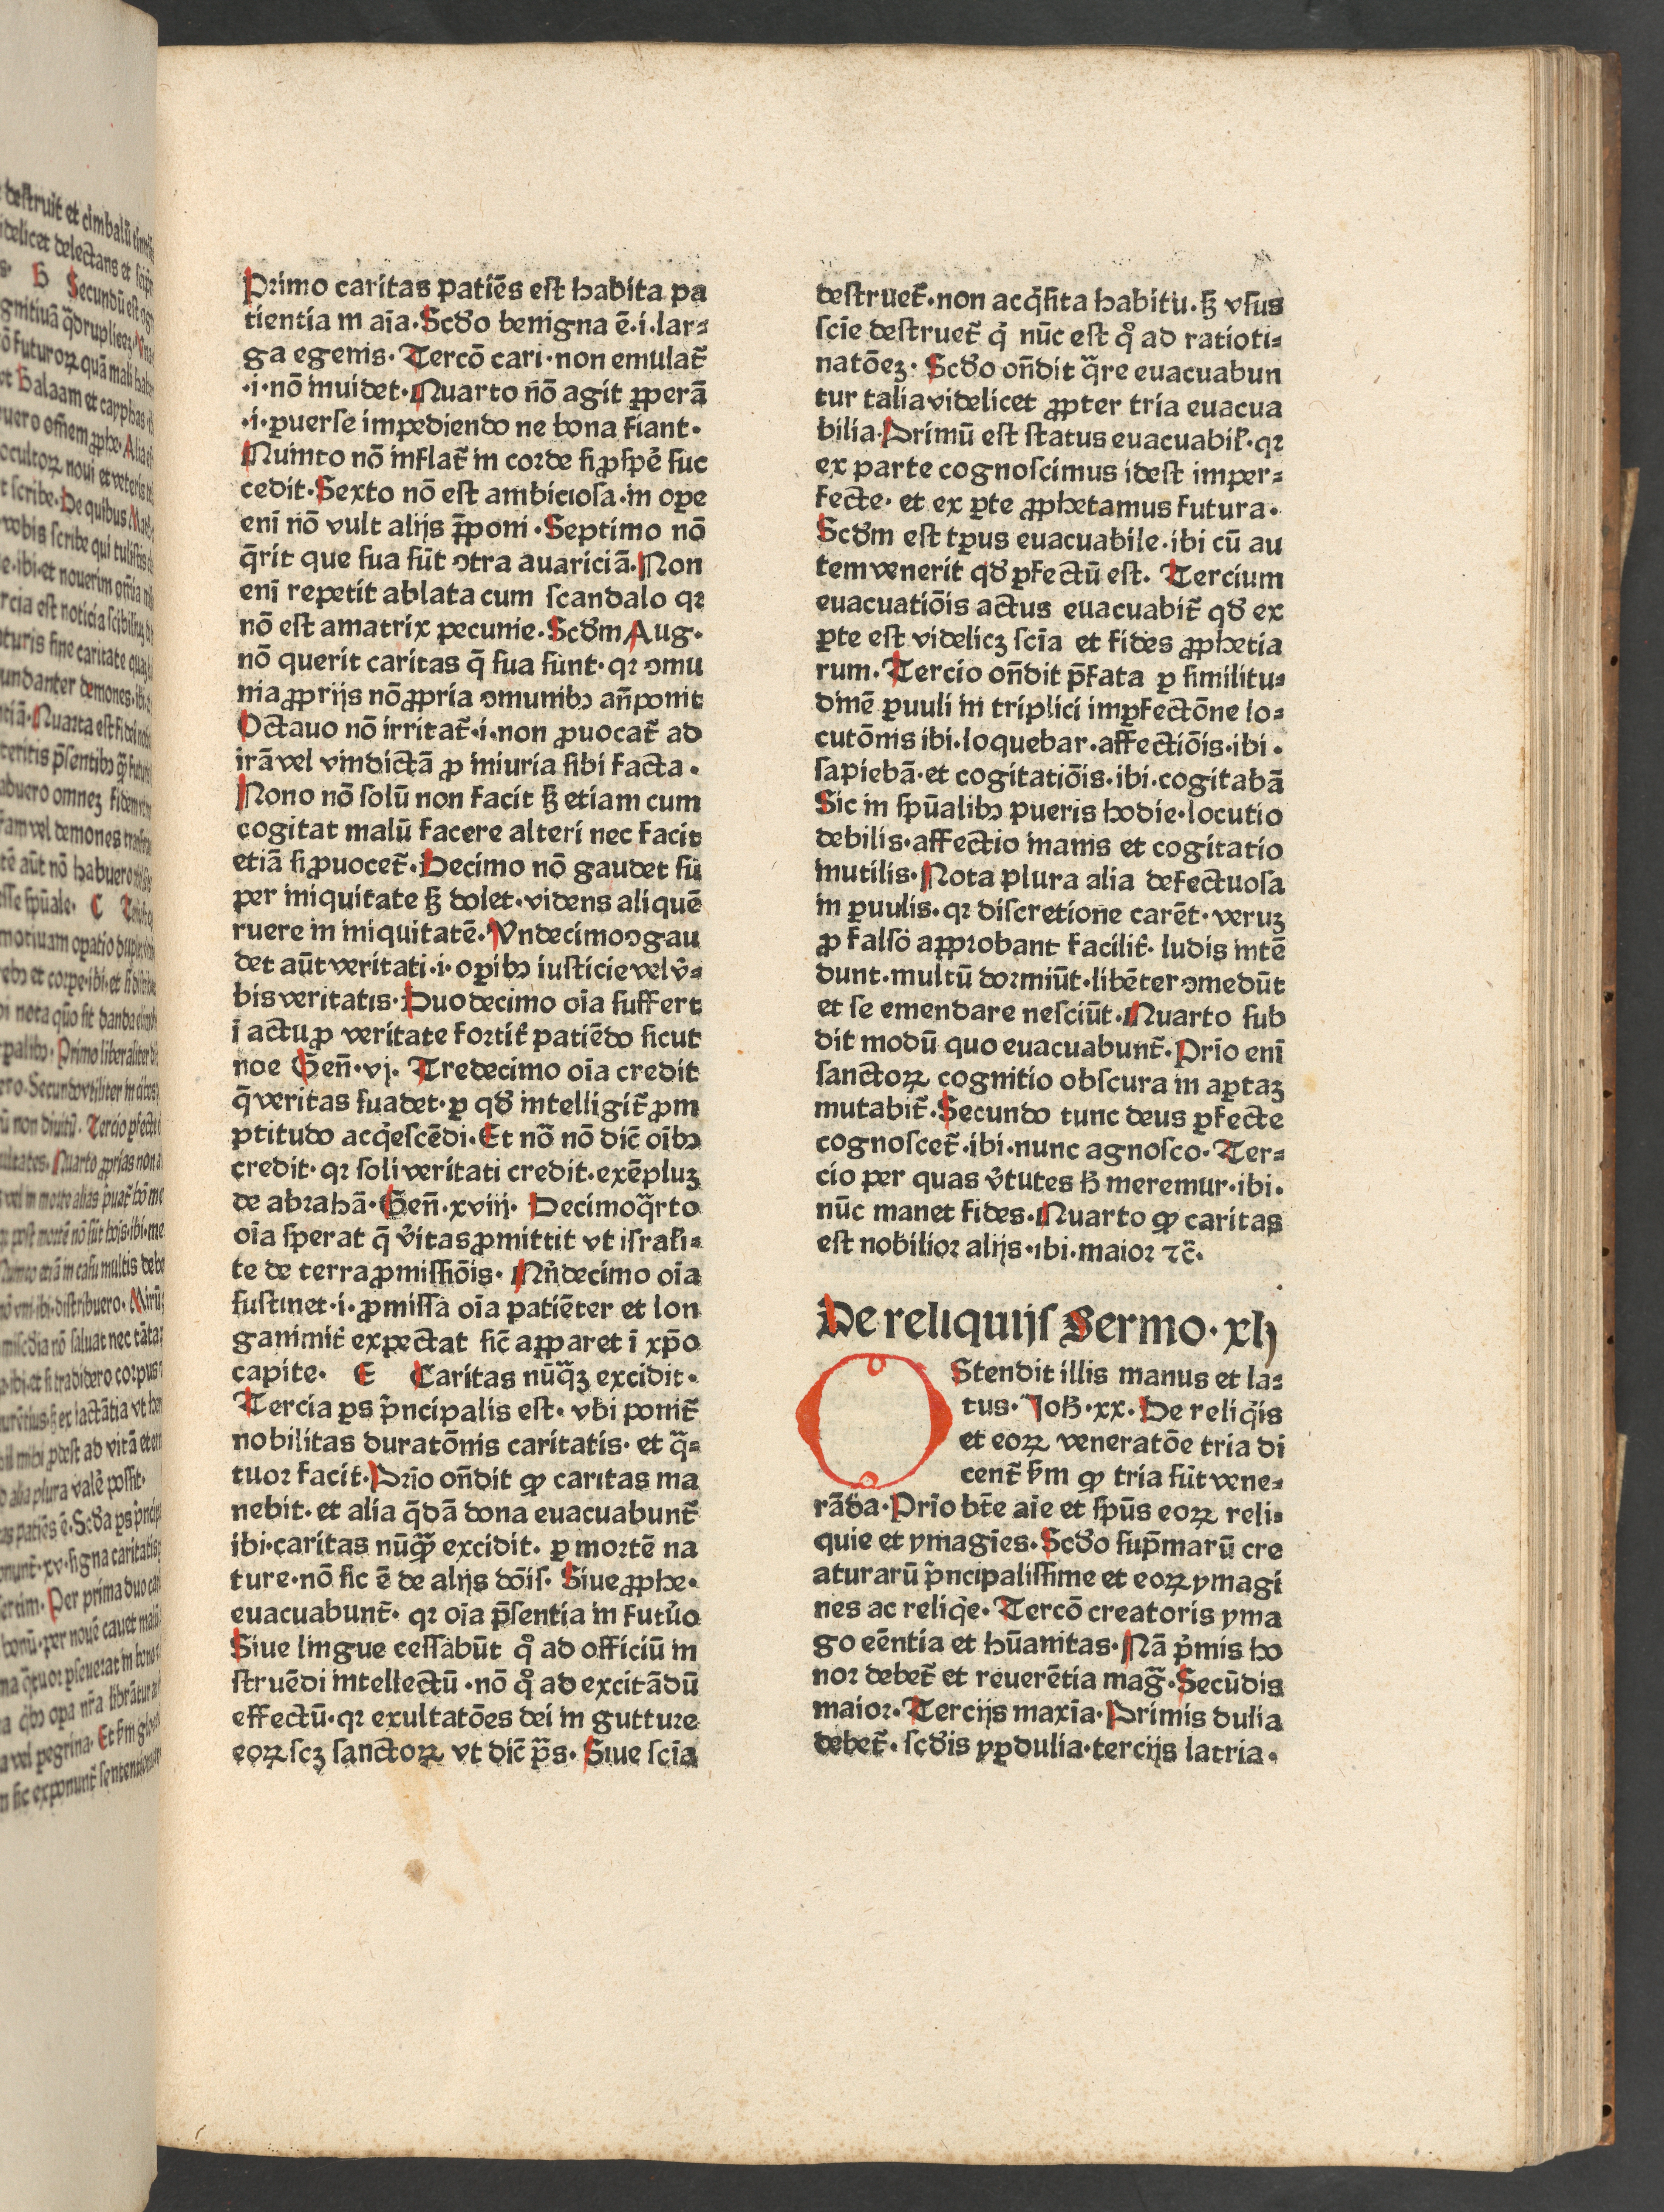 Primo caritas patiēs est habita pa
tientia in aīa. Scḋo benigna ē.i.lar⸗
ga egenis. Tercō cari.non emulat᷑
.i.nō inuidet. Quarto nō agit ꝑꝑerā
.i.ꝑuerse impediendo ne bona fiant.
Quinto nō inflat᷑ in corde si ꝓspe᷑ suc
cedit. Sexto nō est ambiciosa.in oꝑe
enī nō vult alijs p̄poni. Septimo nō
q̄rit que sua sūt ↄtra auariciā. Non
enī repetit ablata cum scandalo qꝛ
nō est amatrix pecunie. Scḋm Aug.
nō querit caritas q̄ sua sunt.qꝛ ↄmu
nia ꝓprijs nō ꝓpria ↄmunibꝰ an̄ponit
Octauo nō irritat᷑.i.non ꝓuocat᷑ ad
irā vel vindictā ꝓ iniuria sibi facta.
Nono nō solū non facit sꝫ etiam cum
cogitat malū facere alteri nec facit
etiā si ꝓuocet᷑. Decimo nō gaudet su
per iniquitate sꝫ dolet.videns aliquē
ruere in iniquitatē. Undecimo ↄgau
det aūt veritati.i.oꝑibꝰ iusticie vel v̓⸗
bis veritatis. Duodecimo oīa suffert
ī actu ꝓ veritate fortit᷑ patiēdo sicut
noe Gen̄.vj. Tredecimo oīa credit
q̄ veritas suadet.ꝑ qḋ intelligit᷑ ꝓm
ptitudo acq̇escēdi. Et nō nō dic̄ oībꝰ
credit.qꝛ soli veritati credit.exēpluꝫ
de abrahā. Gen̄.xviij. Decimoq̄rto
oīa sperat q̄ v̓itas ꝓmittit vt israh̓⸗
te de terra ꝓmissiōis. Qn̄decimo oīa
sustinet.i.ꝓmissa oīa patiēter et lon
ganimit᷑ expectat sic̄ apparet ī xp̄o
capite. E Caritas nūq̄ꝫ excidit.
Tercia ꝑs p̓ncipalis est.vbi ponit᷑
nobilitas duratōnis caritatis.et q̄⸗
tuor facit. Prīo on̄dit ꝙ caritas ma
nebit.et alia q̄dā dona euacuabunt᷑
ibi.caritas nūꝙ̄ excidit.ꝑ mortē na
ture.nō sic ē de alijs dōis. Siue ꝓphe.
euacuabunt᷑.qꝛ oīa p̄sentia in futu̓o
Siue lingue cessabūt qͦ ad officiū in
struēdi intellectū.nō qͦ ad excitādū
effectū.qꝛ exultatōes dei in gutture
eoꝝ scꝫ sanctoꝝ vt dic̄ p̄s. Siue scīa
destruet᷑.non acq̇sita habitu.sꝫ vsus
scīe destruet᷑ q̇ nūc est qͦ ad ratioti⸗
natōeꝫ. Scḋo on̄dit q̄re euacuabun
tur talia videlicet ꝓpter tria euacua
bilia. Primū est status euacuabil̓.qꝛ
ex parte cognoscimus idest imper⸗
fecte.et ex ꝑte ꝓphetamus futura.
Scḋm est tꝑus euacuabile.ibi cū au
tem venerit qḋ ꝑfectū est. Tercium
euacuatiōis actus euacuabit᷑ qḋ ex
ꝑte est videlicꝫ scīa et fides ꝓphetia
rum. Tercio on̄dit p̄fata ꝑ similitu⸗
dinē ꝑuuli in triplici imꝑfectōne lo⸗
cutōnis ibi.loquebar.affectiōis.ibi.
sapiebā.et cogitatiōis.ibi.cogitabā
Sic in spūalibꝰ pueris hodie.locutio
debilis.affectio inanis et cogitatio
inutilis. Nota plura alia defectuosa
in ꝑuulis.qꝛ discretione carēt.veruꝫ
ꝓ falso approbant facilit᷑.ludis intē
dunt.multū dormiūt.libēter ↄmedūt
et se emendare nesciūt. Quarto sub
dit modū quo euacuabunt᷑. Prīo enī
sanctoꝝ cognitio obscura in aꝑtaꝫ
mutabit᷑. Secundo tunc deus ꝑfecte
cognoscet᷑.ibi.nunc agnosco. Ter⸗
cio per quas v̓tutes h̄ meremur.ibi.
nūc manet fides. Quarto ꝙ caritas
est nobilior alijs.ibi.maior ⁊c̄.
De reliquijs Sermo.xlj
OStendit illis manus et la⸗
tus. Joh̄.xx. De reliq̇is
et eoꝝ veneratōe tria di
cent᷑ sm̄ ꝙ tria sūt vene⸗
rāda. Prīo bt̄e aīe et spūs eoꝝ reli⸗
quie et ymagīes. Scḋo sup̄marū cre
aturarū p̓ncipalissime et eoꝝ ymagi
nes ac reliq̇e. Tercō creatoris yma
go eēntia et hūanitas. Nā p̓mis ho
nor debet᷑ et reuerētia mag̃. Secūdis
maior. Tercijs maxīa. Primis dulia
debet᷑.scḋis yꝑdulia.tercijs latria.